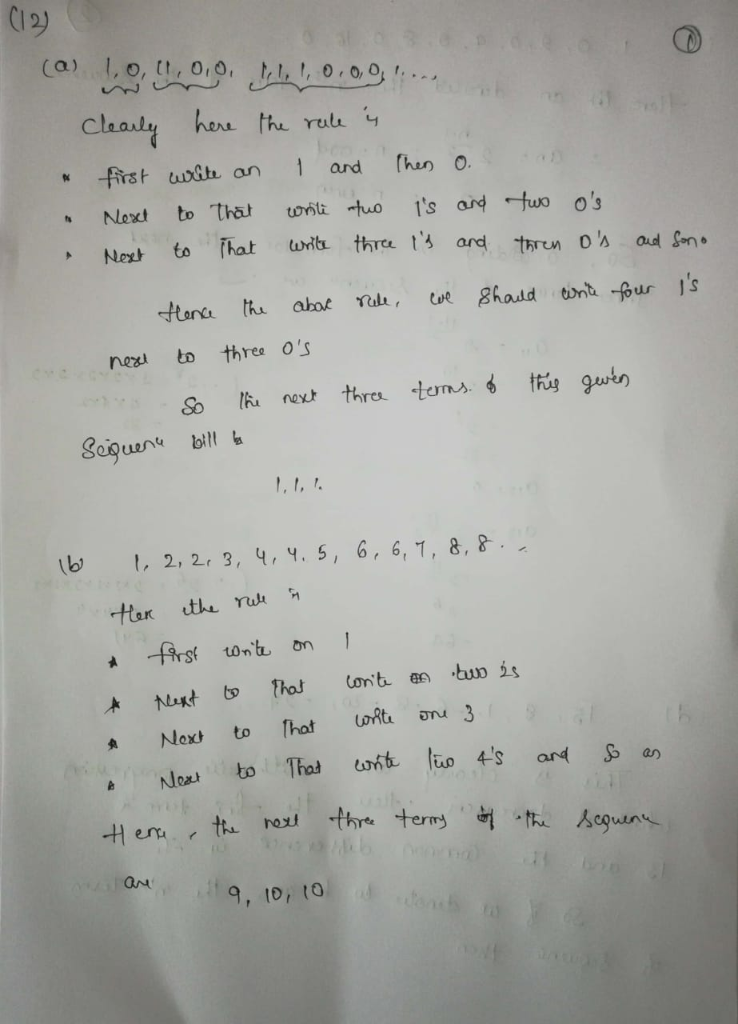 (12)
1
(a) 1, 0, 1, 1, 0, 0, 1, 1, 1, 0, 0, 0, 1, ...
Clearly here the rule is
* first write an 1 and then 0.
* Next to That write two 1's and two 0's
* Next to That write three 1's and three 0's and so on.
Hence the above rule, we should write four 1's
next to three 0's
So the next three terms of this given
Sequence will be
1, 1, 1.
(b) 1, 2, 2, 3, 4, 4, 5, 6, 6, 7, 8, 8 ...
Here the rule is
* first write on 1
* Next to That write two 2s
* Next to That write one 3
* Next to That write two 4's and so on
Hence, the next three terms of the sequence
are 9, 10, 10